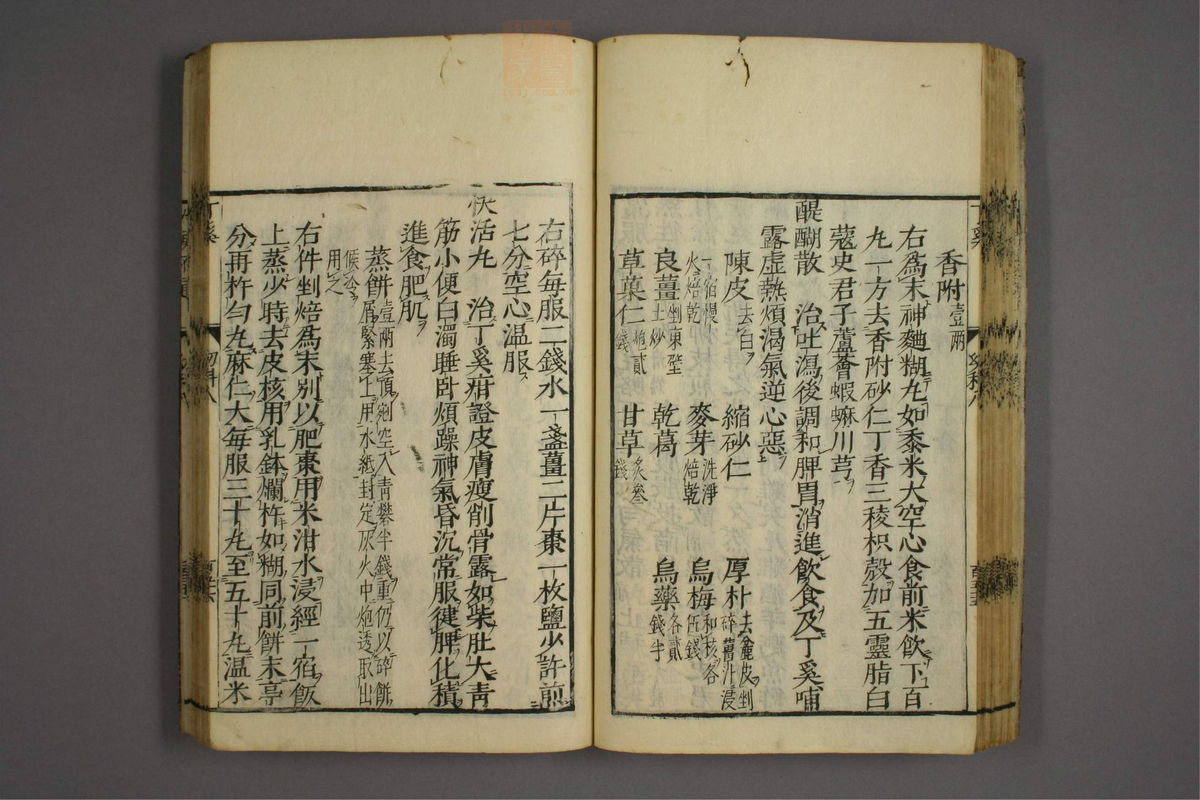 香附壹兩
右爲末神麯糊丸如黍米大空心食前米飲下百
丸一方去香附砂仁丁香三稜枳殼加五靈脂白
蔻史君子蘆薈蝦蟆川芎
醍醐散　治吐瀉後調和脾胃消進飲食及丁奚哺
露虛熱煩渴氣逆心惡
陳皮去白　縮砂仁　厚朴去麄皮剉碎薑汁浸
一宿慢火焙乾　麥芽洗淨焙乾　烏梅和核各伍錢
良薑剉東壁土炒　乾葛　烏藥各貳錢半
草菓仁炮貳錢　甘草炙叄錢
右碎每服二錢水一盞薑二片棗一枚鹽少許煎
七分空心溫服
快活丸　治丁奚疳證皮膚瘦削骨露如柴肚大青
筋小便白濁睡卧煩躁神氣昏沉常服徤脾化積
進食肥肌
蒸餅壹兩去頂剜空入青礬半錢重仍以碎餅屑緊塞上用水紙封定灰火中炮透取出候冷用之
右件剉焙爲末别以肥棗用米泔水浸經一宿飯
上蒸少時去皮核用乳鉢爛杵如糊同前餅末亭
分再杵勻丸麻仁大每服三十丸至五十丸温米